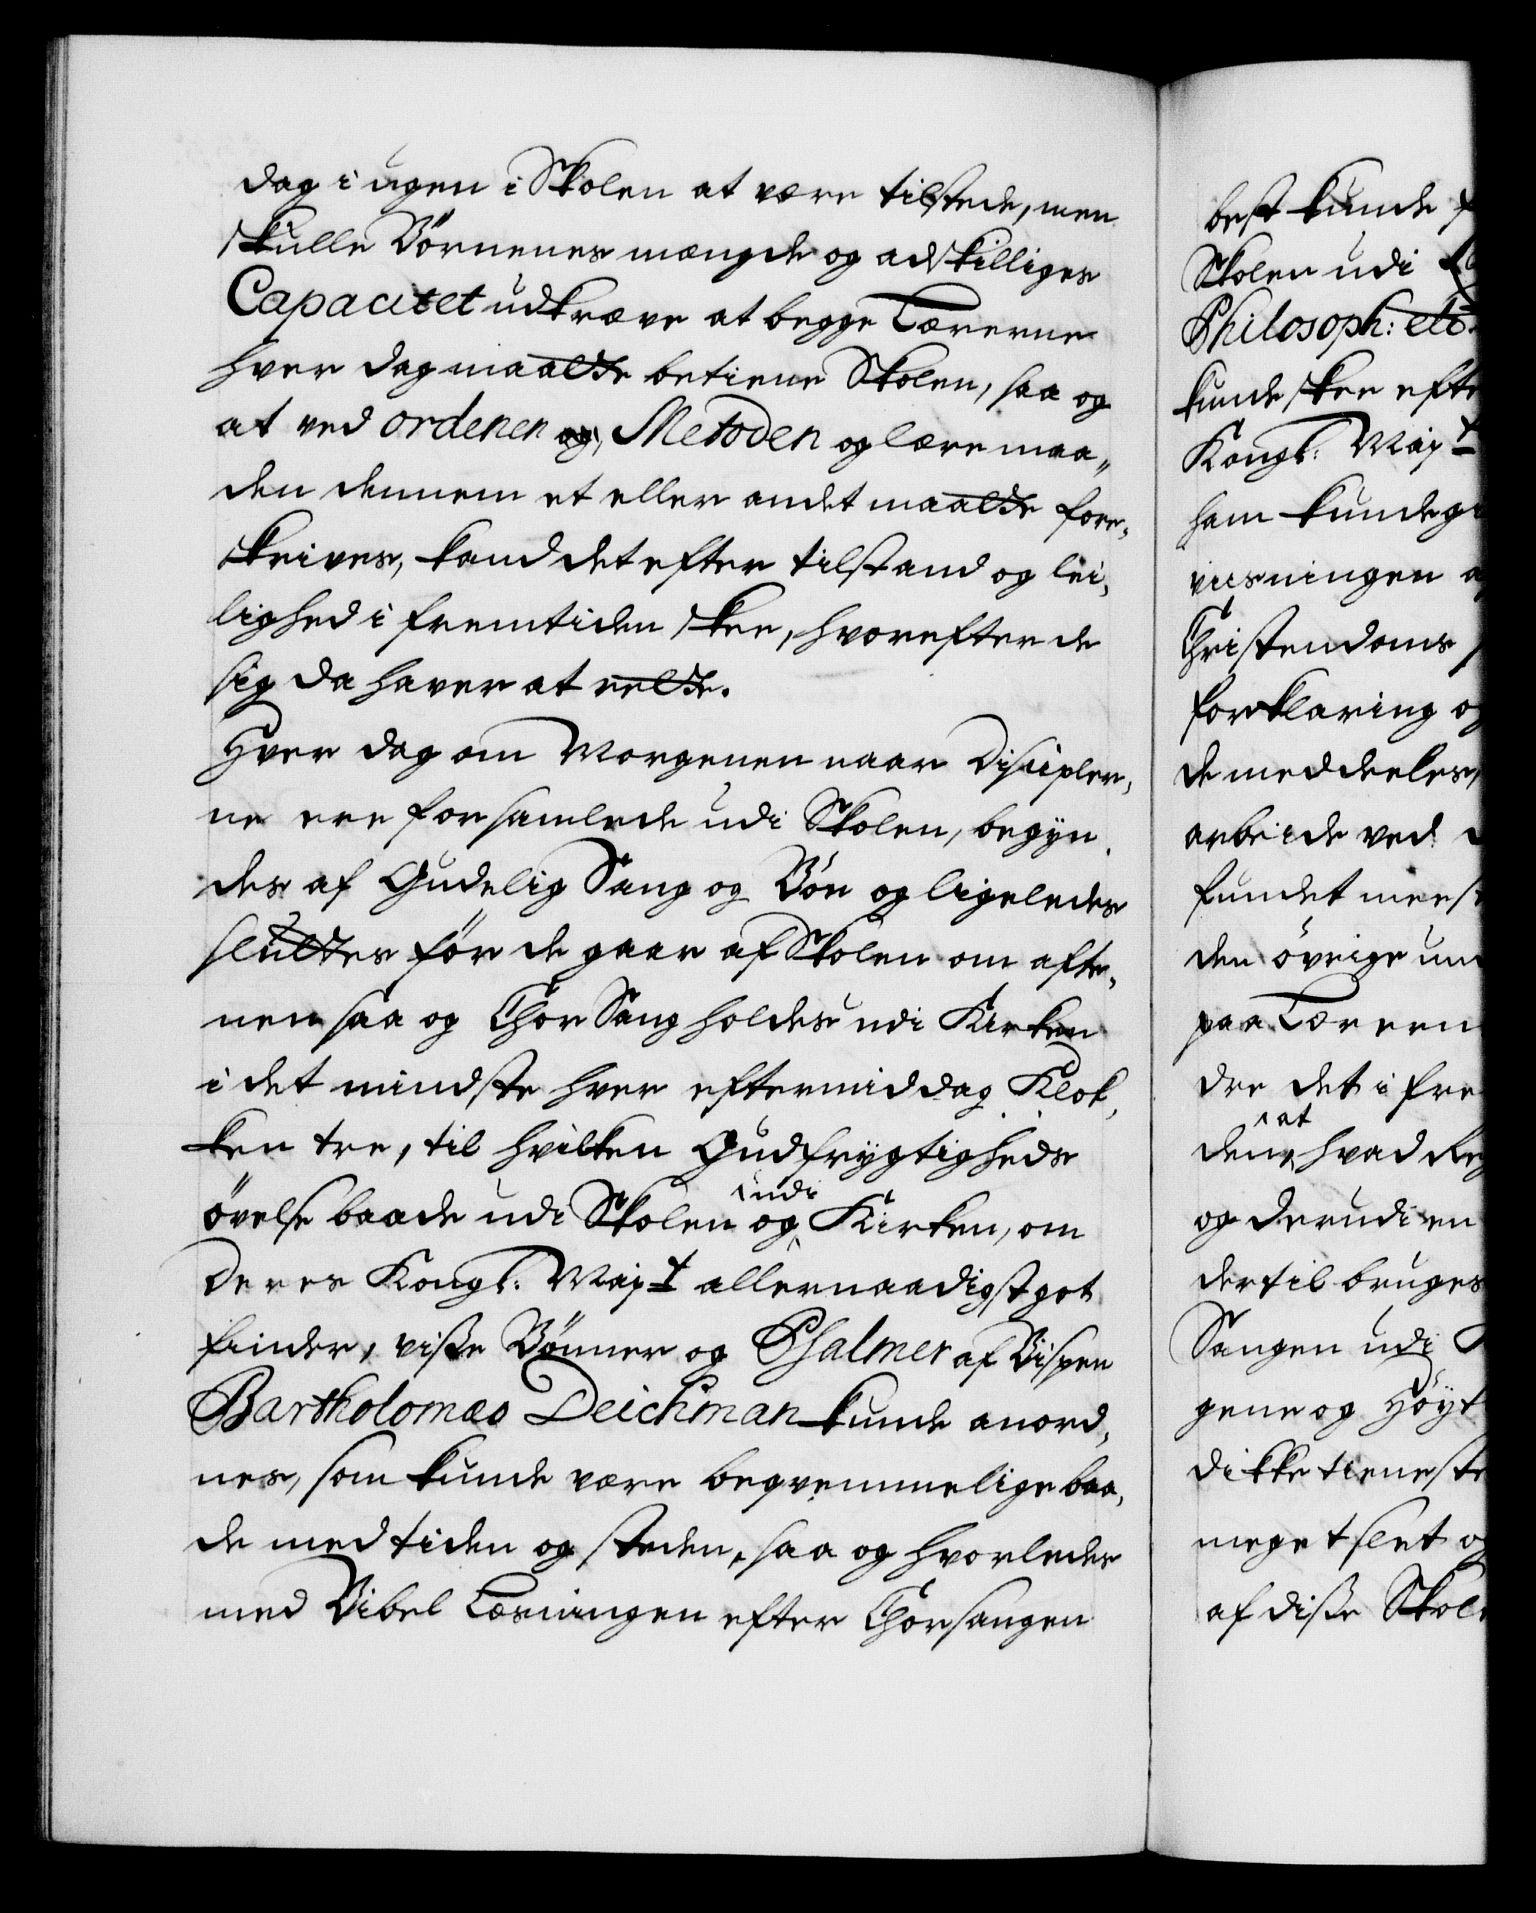 dag i ugen i Skolen at være tilstede, men
skulle Børnenes mængde og adskilliges
Capacitet udkræve at begge Lærerne
hver dag maatte betiene Skolen, saa og
at ved ordenen og Metoden og lære maa„
den dennem et eller andet maatte fore„
skrives, kand det efter tilstand og lei„
lighed i fremtiden skee, hvorefter de
sig da haver at rette.
Hver dag om Morgenen naar Discipler„
ne ere forsamlede udi Skolen, begyn„
des af Gudelig Sang og Bøn og ligeledes
sluttes før de gaar af Skolen om afte„
nen saa og Chor Sang holdes udi Kirken
i det mindste hver eftermiddag Klok„
ken tre, til hvilken Gudfrygtigheds
udi
øvelse baade udi Skolen og Kirken, om
Deres Kongl: Mayt allernaadigst got
finder, visse Bønner og Psalmer af Bispen
Bartholomæo Deichman kunde anord„
nes, som kunde være beqvemmelige baa„
de med tiden og steden, saa og hvorledes
med Bibel Læsningen efter Chorsangen
best kunde
Skolen udi
Philosoph: etc.
kunde skee efte
Kongl: Mayt
ham kunde
viisningen
Christendoms
forklaring og
de meddeeles,
arbeide ved
fundet meest
den øvrige un
paa Læreren
dre det i fre
at
den, hvad Reg
og derudi en
dertil bruges
Sangen udi
gene og Høyt
dikke tieneste
meget slet og
af disse Skole